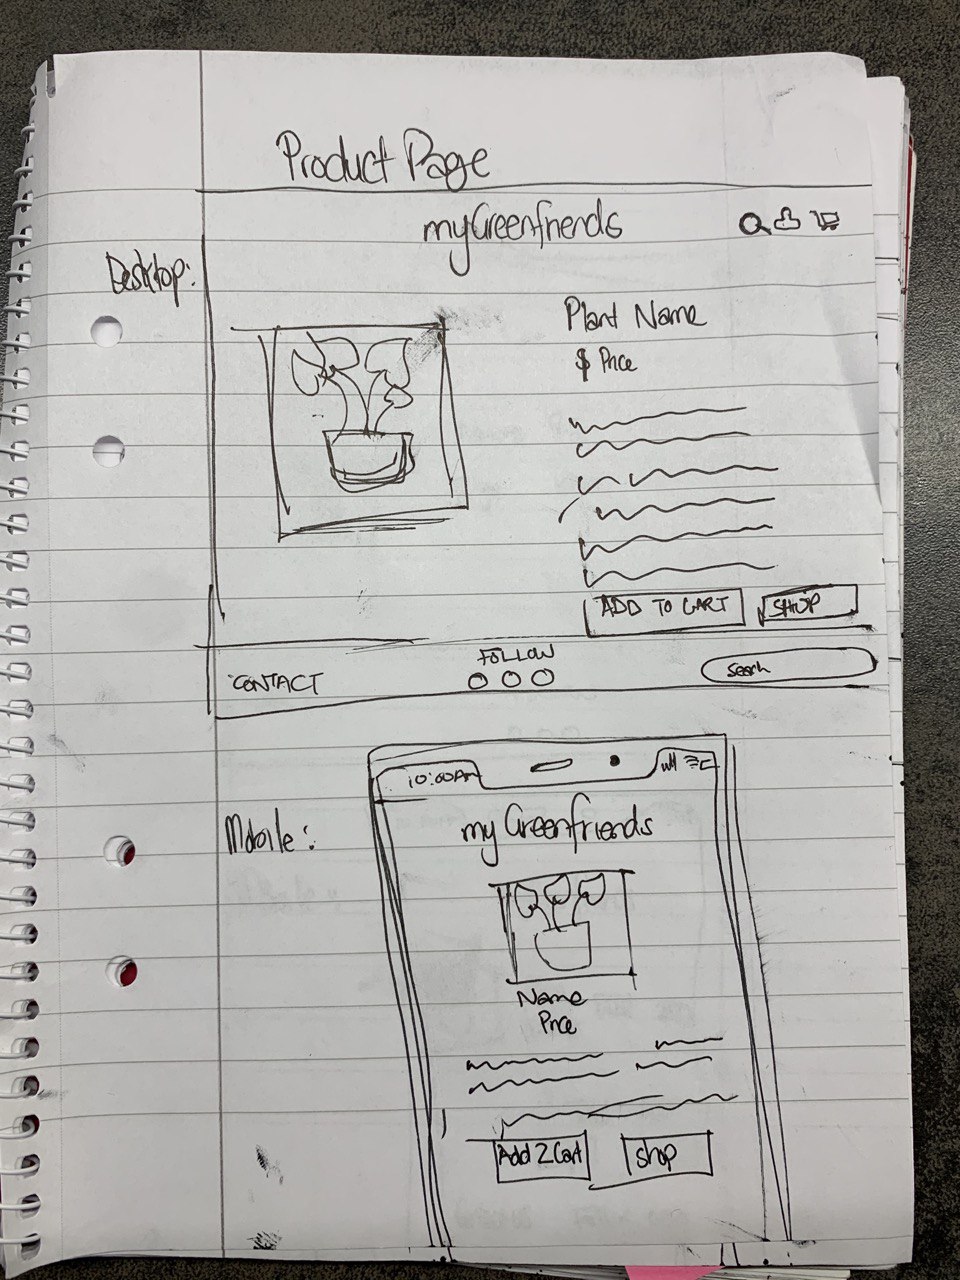 Product Page
myGreenfriends
Desktop:
Plant Name
$ Price
ADD TO CART
SHOP
CONTACT
FOLLOW
Search
Mobile:
10:00AM
my Greenfriends
Name
Price
Add 2 Cart
Shop